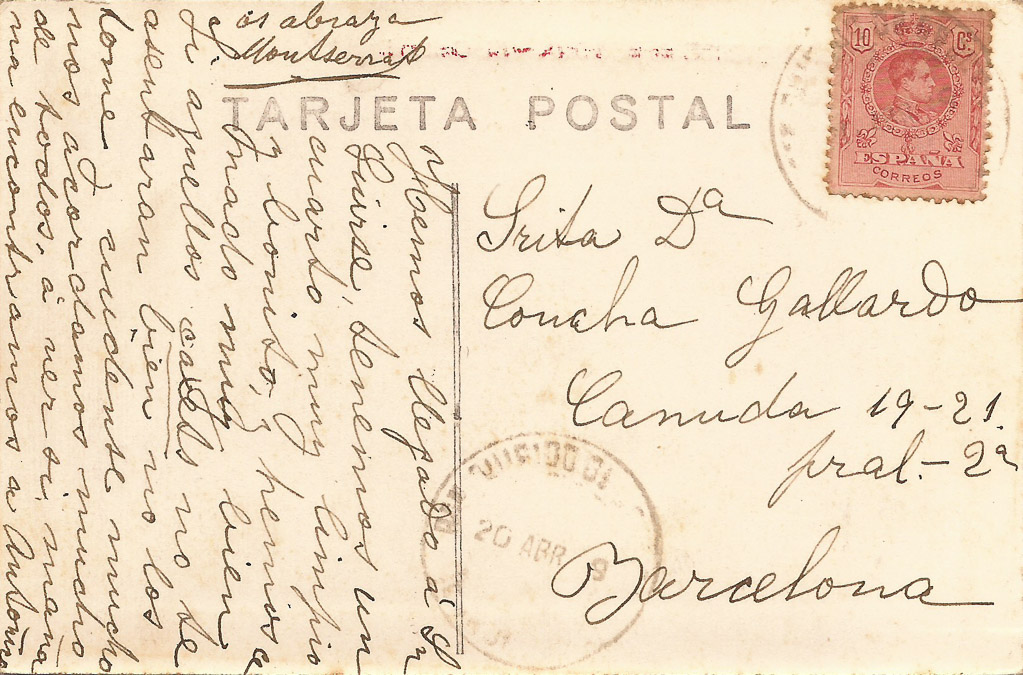 TARJETA POSTAL
10 Cs
ESPAÑA
CORREOS
Srita Dª
Concha Gallardo
Canuda 19-21.
pral.- 2ª
Barcelona
20 ABR 9
Hemos llegado á Sn
tenemos un
cuarto muy limpio
y bonito, hemos c
enado muy bien
Si aquellos cafés no te
asentaran bien no los
tome cuidense mucho
nos acordamos mucho
de todos, á ver si maña
na encontramos a
os abraza
Montserrat